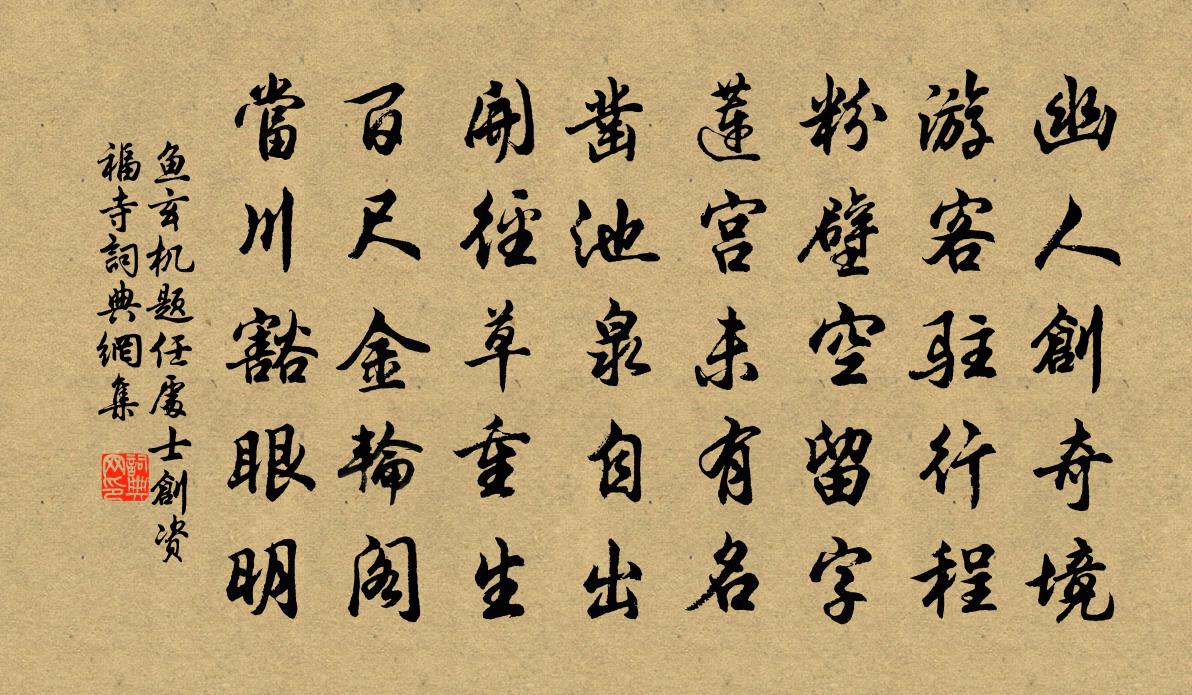 幽人創奇境
游客駐行程
粉壁空留字
蓮宫未有名
鑿池泉自出
開徑草重生
百尺金輪閣
當川豁眼明
鱼玄机题任處士創资
福寺詞典網集
詞典
网印